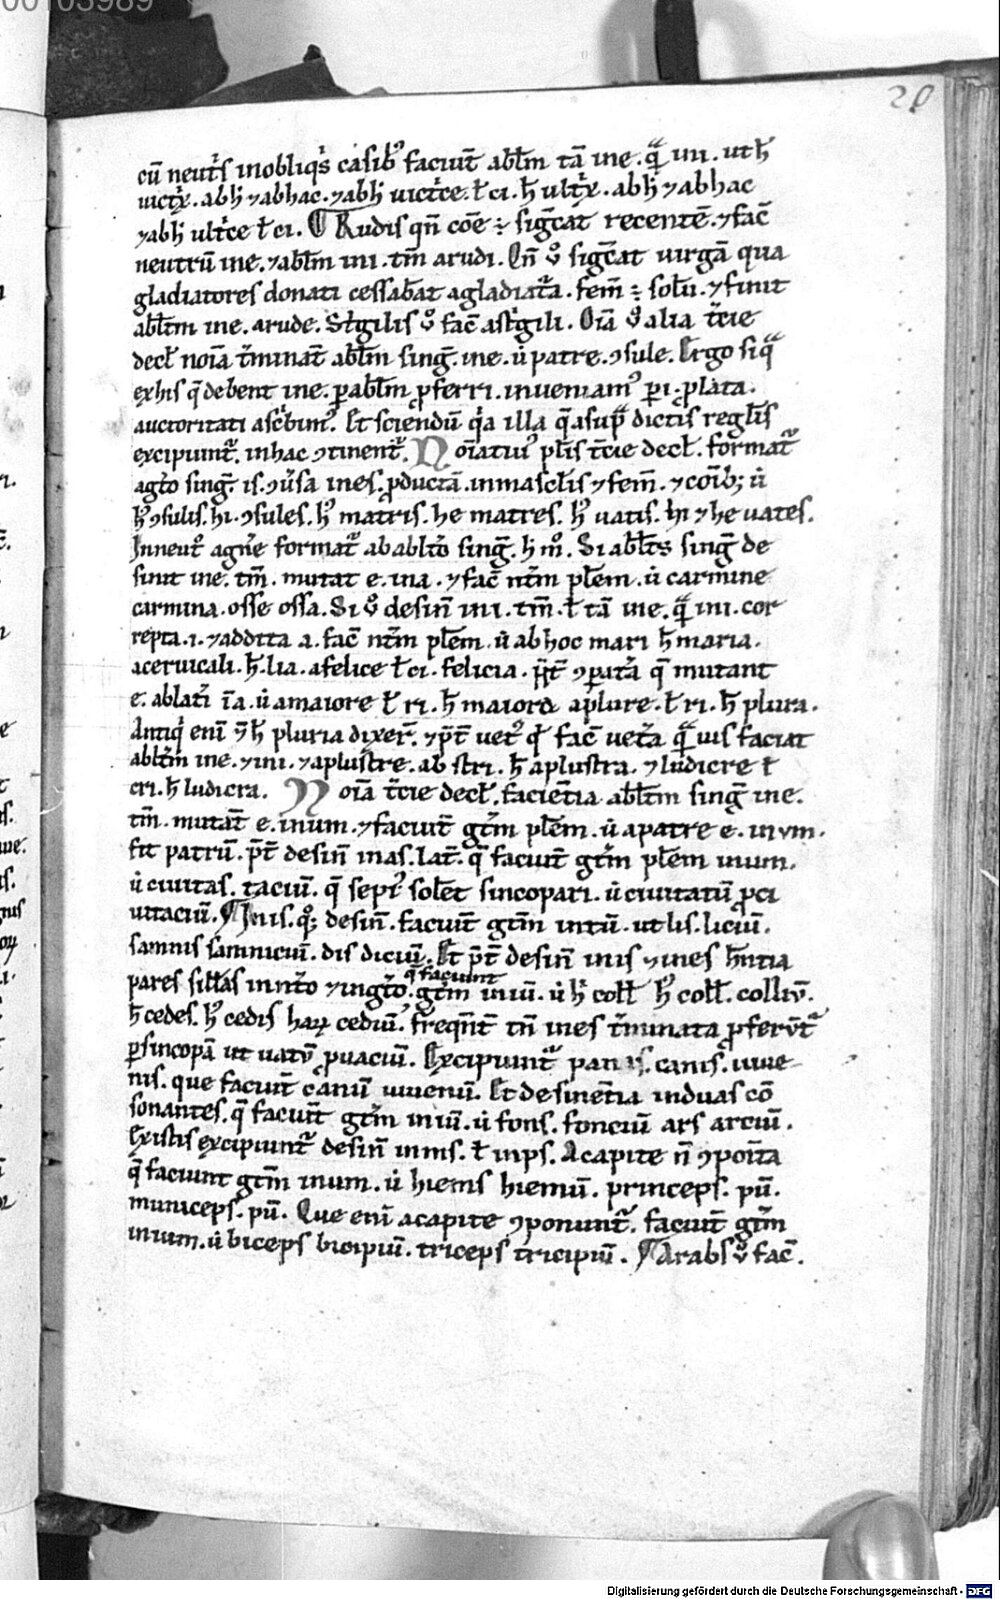 00103989
20
cū neut͛s inobliq͛s casib᷒ faciūt abl̄m tā ine. q̄ᵃ ini. ut h̄
uictⁱx. abh̄ ⁊abhac. ⁊abh̄ uictⁱce. ł ci. h̄ ultⁱx. abh̄ ⁊abhac
⁊abh̄ ultⁱce ł ci. ¶ Rudis qn̄ cōe ÷ siḡcat recentē. ⁊fac̄
neutrū ine. ⁊abl̄m ini. tm̄ arudi. Qn̄ ů siḡcat uirgā qua
gladiatores donati cessabāt agladiatᵃa. fem̄ ÷ solū. ⁊finit
abl̄tm ine. arude. Stⁱgilis ů fac̄ astⁱgili. Oīa ů alia t̄cie
decł noīa t͛minat̄ abl̄m sinḡ. ine. u̇ patre. ꝯsule. Ergo siqᵃ
exhis q̄ debent ine. ꝑabl̄m ꝓferri. inueniam᷒ ꝑi. ꝓlata.
auctoritati ascⁱbim᷒. Et sciendū qⁱa illa q̄ asupᵃ dictis regłis
excipiunt᷑. inhac ꝯtinent᷑. Noīatiu᷒ plīs t̄cie decł. format᷑
agt̊o sinḡ. is. ꝯu͛sa ines. ꝓductā. inmascłis ⁊fem̄. ⁊coīb; u̇
h᷒ ꝯsulis. hi. ꝯsules. h᷒ matris. he matres. h᷒ uatis. hi ⁊he uates.
Inneut᷒ aḡne format᷑ ab ablt̊o sinḡ. h m̊. Si abl̄ts sinḡ de
sinit ine. tm̄. mutat e. ina. ⁊fac̄ nt̄m pl̄em. u̇ carmine
carmina. osse ossa. Si ů desin̄ ini. tm̄. ł tā ine. q̄ᵃ ini. cor
repta. i. ⁊addita a. fac̄ nt̄m pl̄em. u̇ ab hoc mari h̄ maria.
aceruicali. h̄. lia. afelice ł ci. felicia. p̄t͛ ꝯꝑatᵃ q̄ mutant
e. ablati īa. u̇ amaiore ł ri. h̄ maiora aplure. ł ri. h̄ plura.
Antiqⁱ eni h̄ pluria dixer̄. ⁊p̄t͛ uet᷒ qͥ fac̄ uet͛a q̄ᵃuis faciat
abl̄tm ine. ⁊ini. ⁊aplustre. ab stri. h̄ aplustra. ⁊ludicre ł
cri. h̄ ludicra. Noīa t̄cie decł. facientia abl̄tm sinḡ ine.
tm̄. mutāt e. inum. ⁊faciūt gt̄m pl̄em. u̇ apatre e. in vm.
fit patrū. p̄t͛ desin̄ inas. lat̄. q̄ faciūt gt̄m pl̄em inum.
u̇ ciuitas. taciū. q̄ sepi᷒ solēt sincopari. u̇ ciuitatū ꝓ ci
uitaciū. ¶ Inis. q; desin̄. faciūt gt̄m iniū. ut lis. liciū.
samnis samniciū. dis diciū. Et p̄t͛ desin̄ inis ⁊ines h̄ntia
pares sillas innt̊o ⁊ingt̊o. q̄ faciunt gt̄m iniū. u̇ h᷒ coll̄ h᷒ coll̄. colliū.
h̄ cedes. h᷒ cedis haꝝ cediū. freqn̄t͛ tn̄ ines t͛minata ꝓferūt᷑
ꝑsincopā ut uatū ꝓuaciū. Excipiunt᷑ panis. canis. iuue-
nis. que faciūt canū iuuenū. Et desinētia induas cō
sonantes. q̄ faciūt gt̄m iniū. u̇ fons. fonciū ars arciū.
Existis excipiunt᷑ desin̄ inms. ł inps. Acapite n̄ ꝯpoīta
q̄ faciunt gt̄m inum. u̇ hiems hiemū. princeps. pū.
municeps. pū. Que eni acapite ꝯponunt᷑. faciūt gt̄m
inium. u̇ biceps bicipiū. triceps tricipiū. ¶ Arabs ů fac̄.
Digitalisierung gefördert durch die Deutsche Forschungsgemeinschaft - DFG